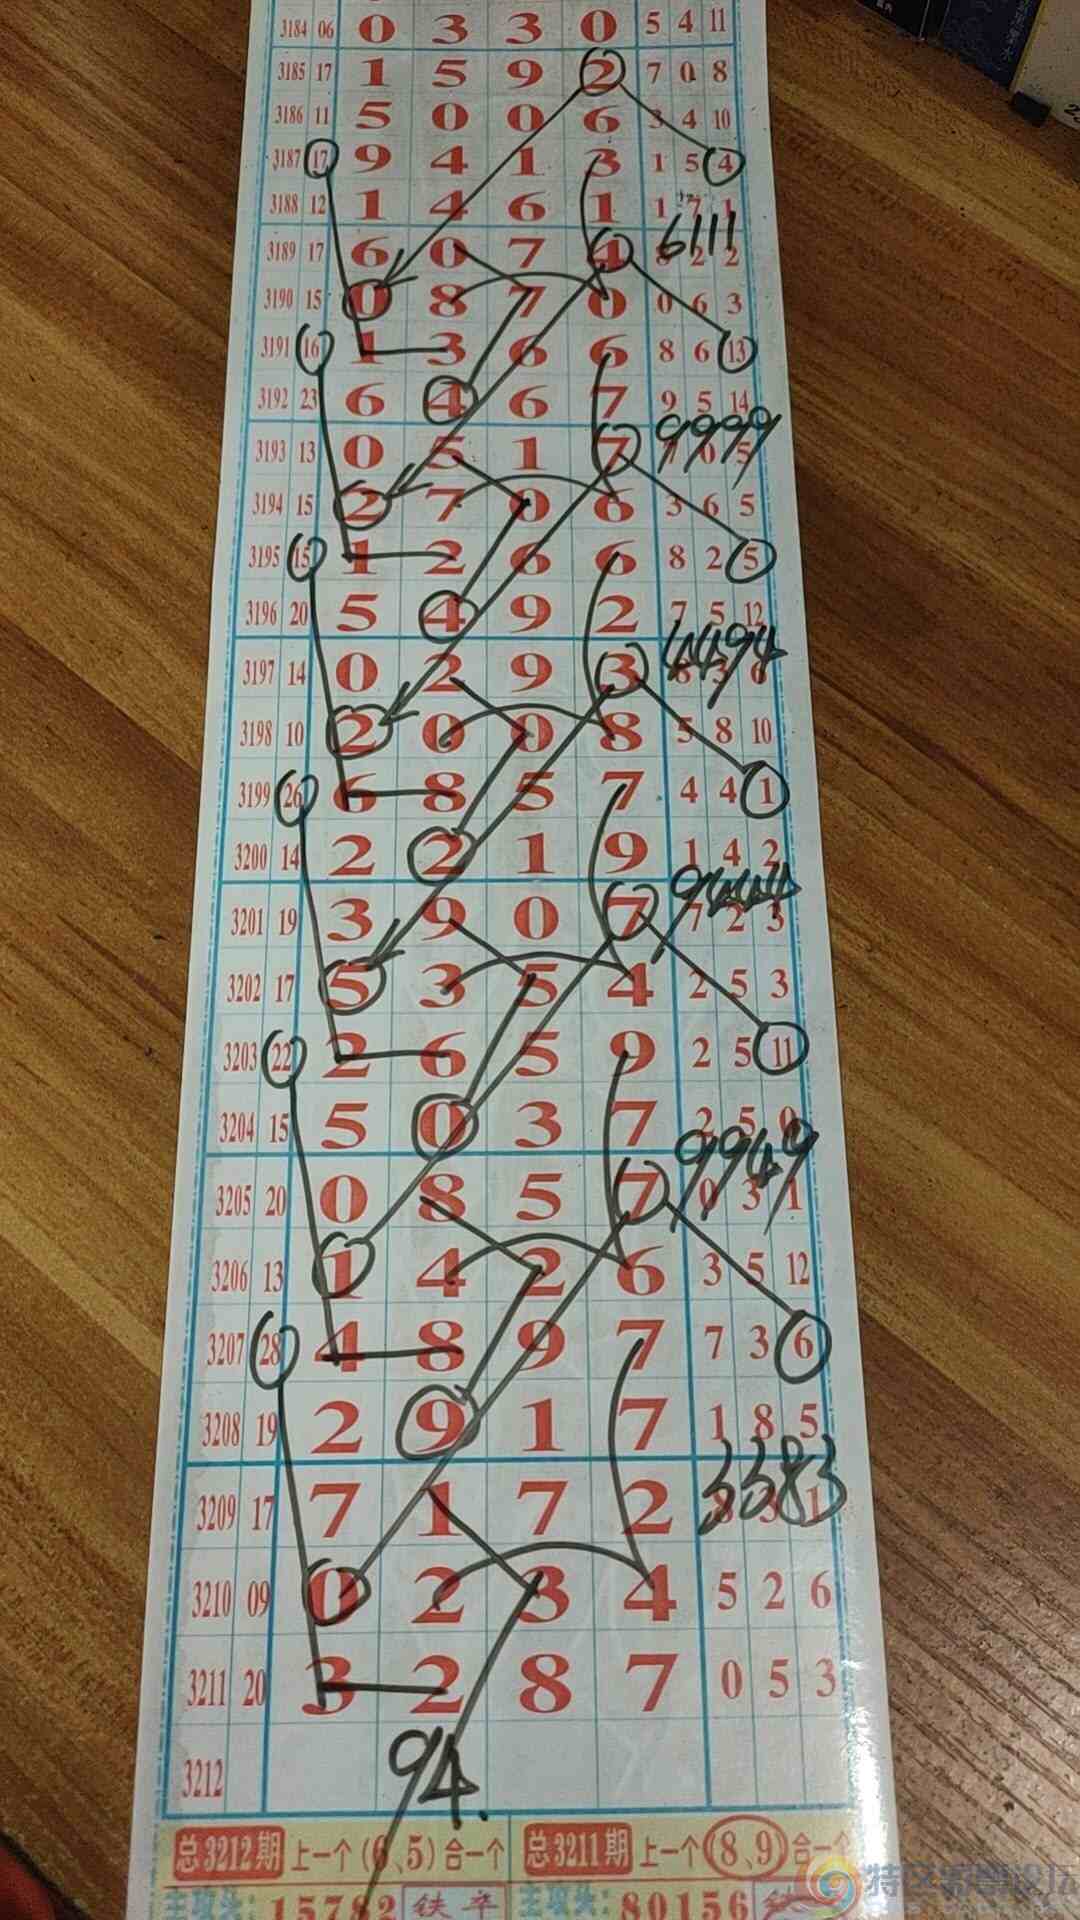 3184 06 0 3 3 0 5 4 11
3185 17 1 5 9 2 7 0 8
3186 11 5 0 0 6 3 4 10
3187 17 9 4 1 3 1 5 4
3188 12 1 4 6 1 1 7 1
6111
3189 17 6 0 7 4 8 2 2
3190 15 0 8 7 0 0 6 3
3191 16 1 3 6 6 8 6 13
3192 23 6 4 6 7 9 5 14
9999
3193 13 0 5 1 7 0 5
3194 15 2 7 0 6 3 6 5
3195 15 1 2 6 6 8 2 5
3196 20 5 4 9 2 7 5 12
4494
3197 14 0 2 9 3 8 3 6
3198 10 2 0 0 8 5 8 10
3199 26 6 8 5 7 4 4 1
3200 14 2 2 1 9 1 4 2
9444
3201 19 3 9 0 7 7 2 3
3202 17 5 3 5 4 2 5 3
3203 22 2 6 5 9 2 5 11
3204 15 5 0 3 7 2 5 0
9949
3205 20 0 8 5 7 0 3 1
3206 13 1 4 2 6 3 5 12
3207 28 4 8 9 7 7 3 6
3208 19 2 9 1 7 1 8 5
3383
3209 17 7 1 7 2 8 3 1
3210 09 0 2 3 4 5 2 6
3211 20 3 2 8 7 0 5 3
3212
94.
总3212期 上一个(6、5)合一个 总3211期 上一个(8、9)合一个
主攻头:15782 铁卒 主攻头:80156
特区彩票论坛